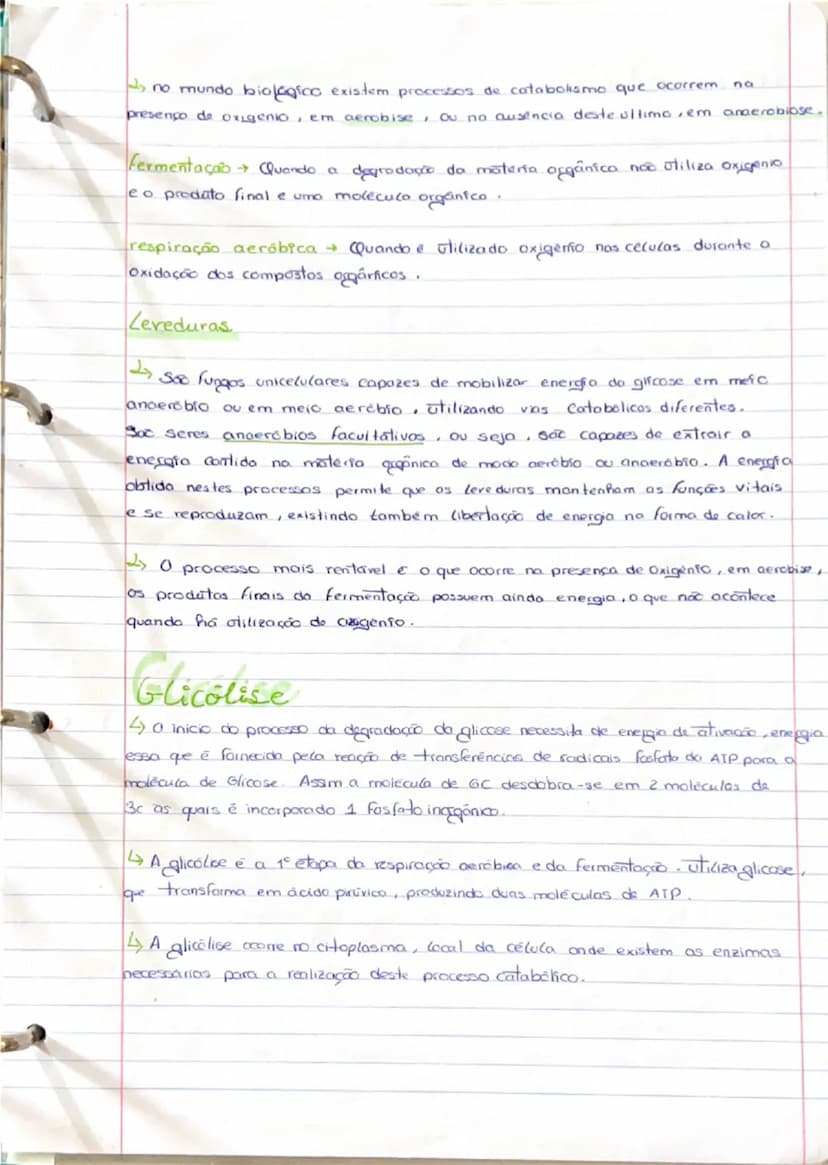 ↳ no mundo biológico existem processos de catabolismo que ocorrem na
presença de oxigénio, em aerobise, ou na ausência deste ultimo, em anaerobiose.
fermentação → Quando a degradação da matéria orgânica não utiliza oxigénio
e o produto final e uma molécula orgânica.
respiração aeróbica → Quando e utilizado oxigénio nas células durante a
oxidação dos compostos orgânicos.
Leveduras
↳ São fungos unicelulares capazes de mobilizar energia da glicose em meio
anaeróbio ou em meio aeróbio, utilizando vias catabólicas diferentes.
São seres anaeróbios facultativos, ou seja, são capazes de extrair a
energia contida na matéria orgânica de modo aeróbio ou anaeróbio. A energia
obtida nestes processos permite que as leveduras mantenham as funções vitais
e se reproduzam, existindo também libertação de energia na forma de calor.
↳ O processo mais rentável e o que ocorre na presença de oxigénio, em aerobise,
os produtos finais da fermentação possuem ainda energia, o que não acontece
quando há utilização de oxigénio.
Glicólise
↳ O inicio do processo da degradação da glicose necessita de energia de ativação, energia
essa que é fornecida pela reação de transferências de radicais fosfato do ATP para a
molécula de Glicose. Assim a molécula de 6C desdobra-se em 2 moléculas de
3c as quais é incorporado 1 fosfato inorgânico.
↳ A glicólise é a 1ª etapa da respiração aeróbica e da fermentação. Utiliza glicose,
que transforma em ácido pirúvico, produzindo duas moléculas de ATP.
↳ A glicólise ocorre no citoplasma, local da célula onde existem as enzimas
necessárias para a realização deste processo catabólico.